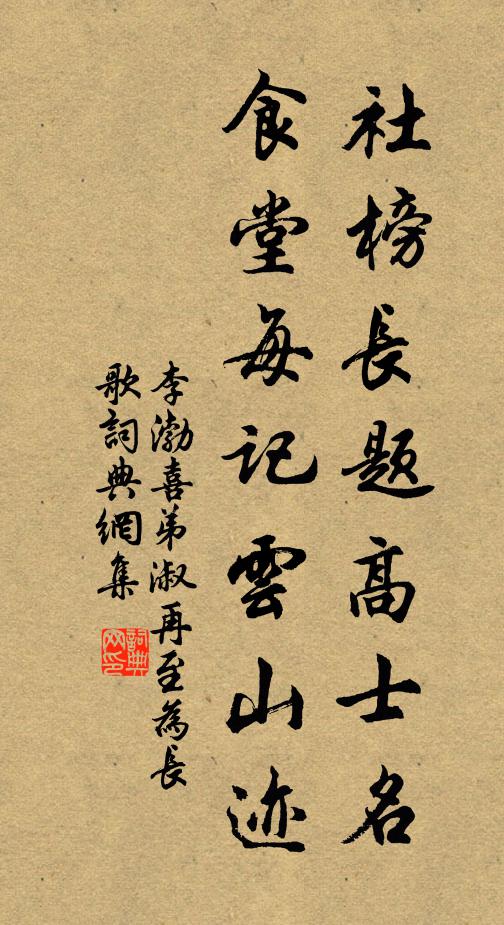 社榜長題高士名
食堂每記雲山迹
李渤喜弟淑再至為長
歌詞典網集
詞典网印